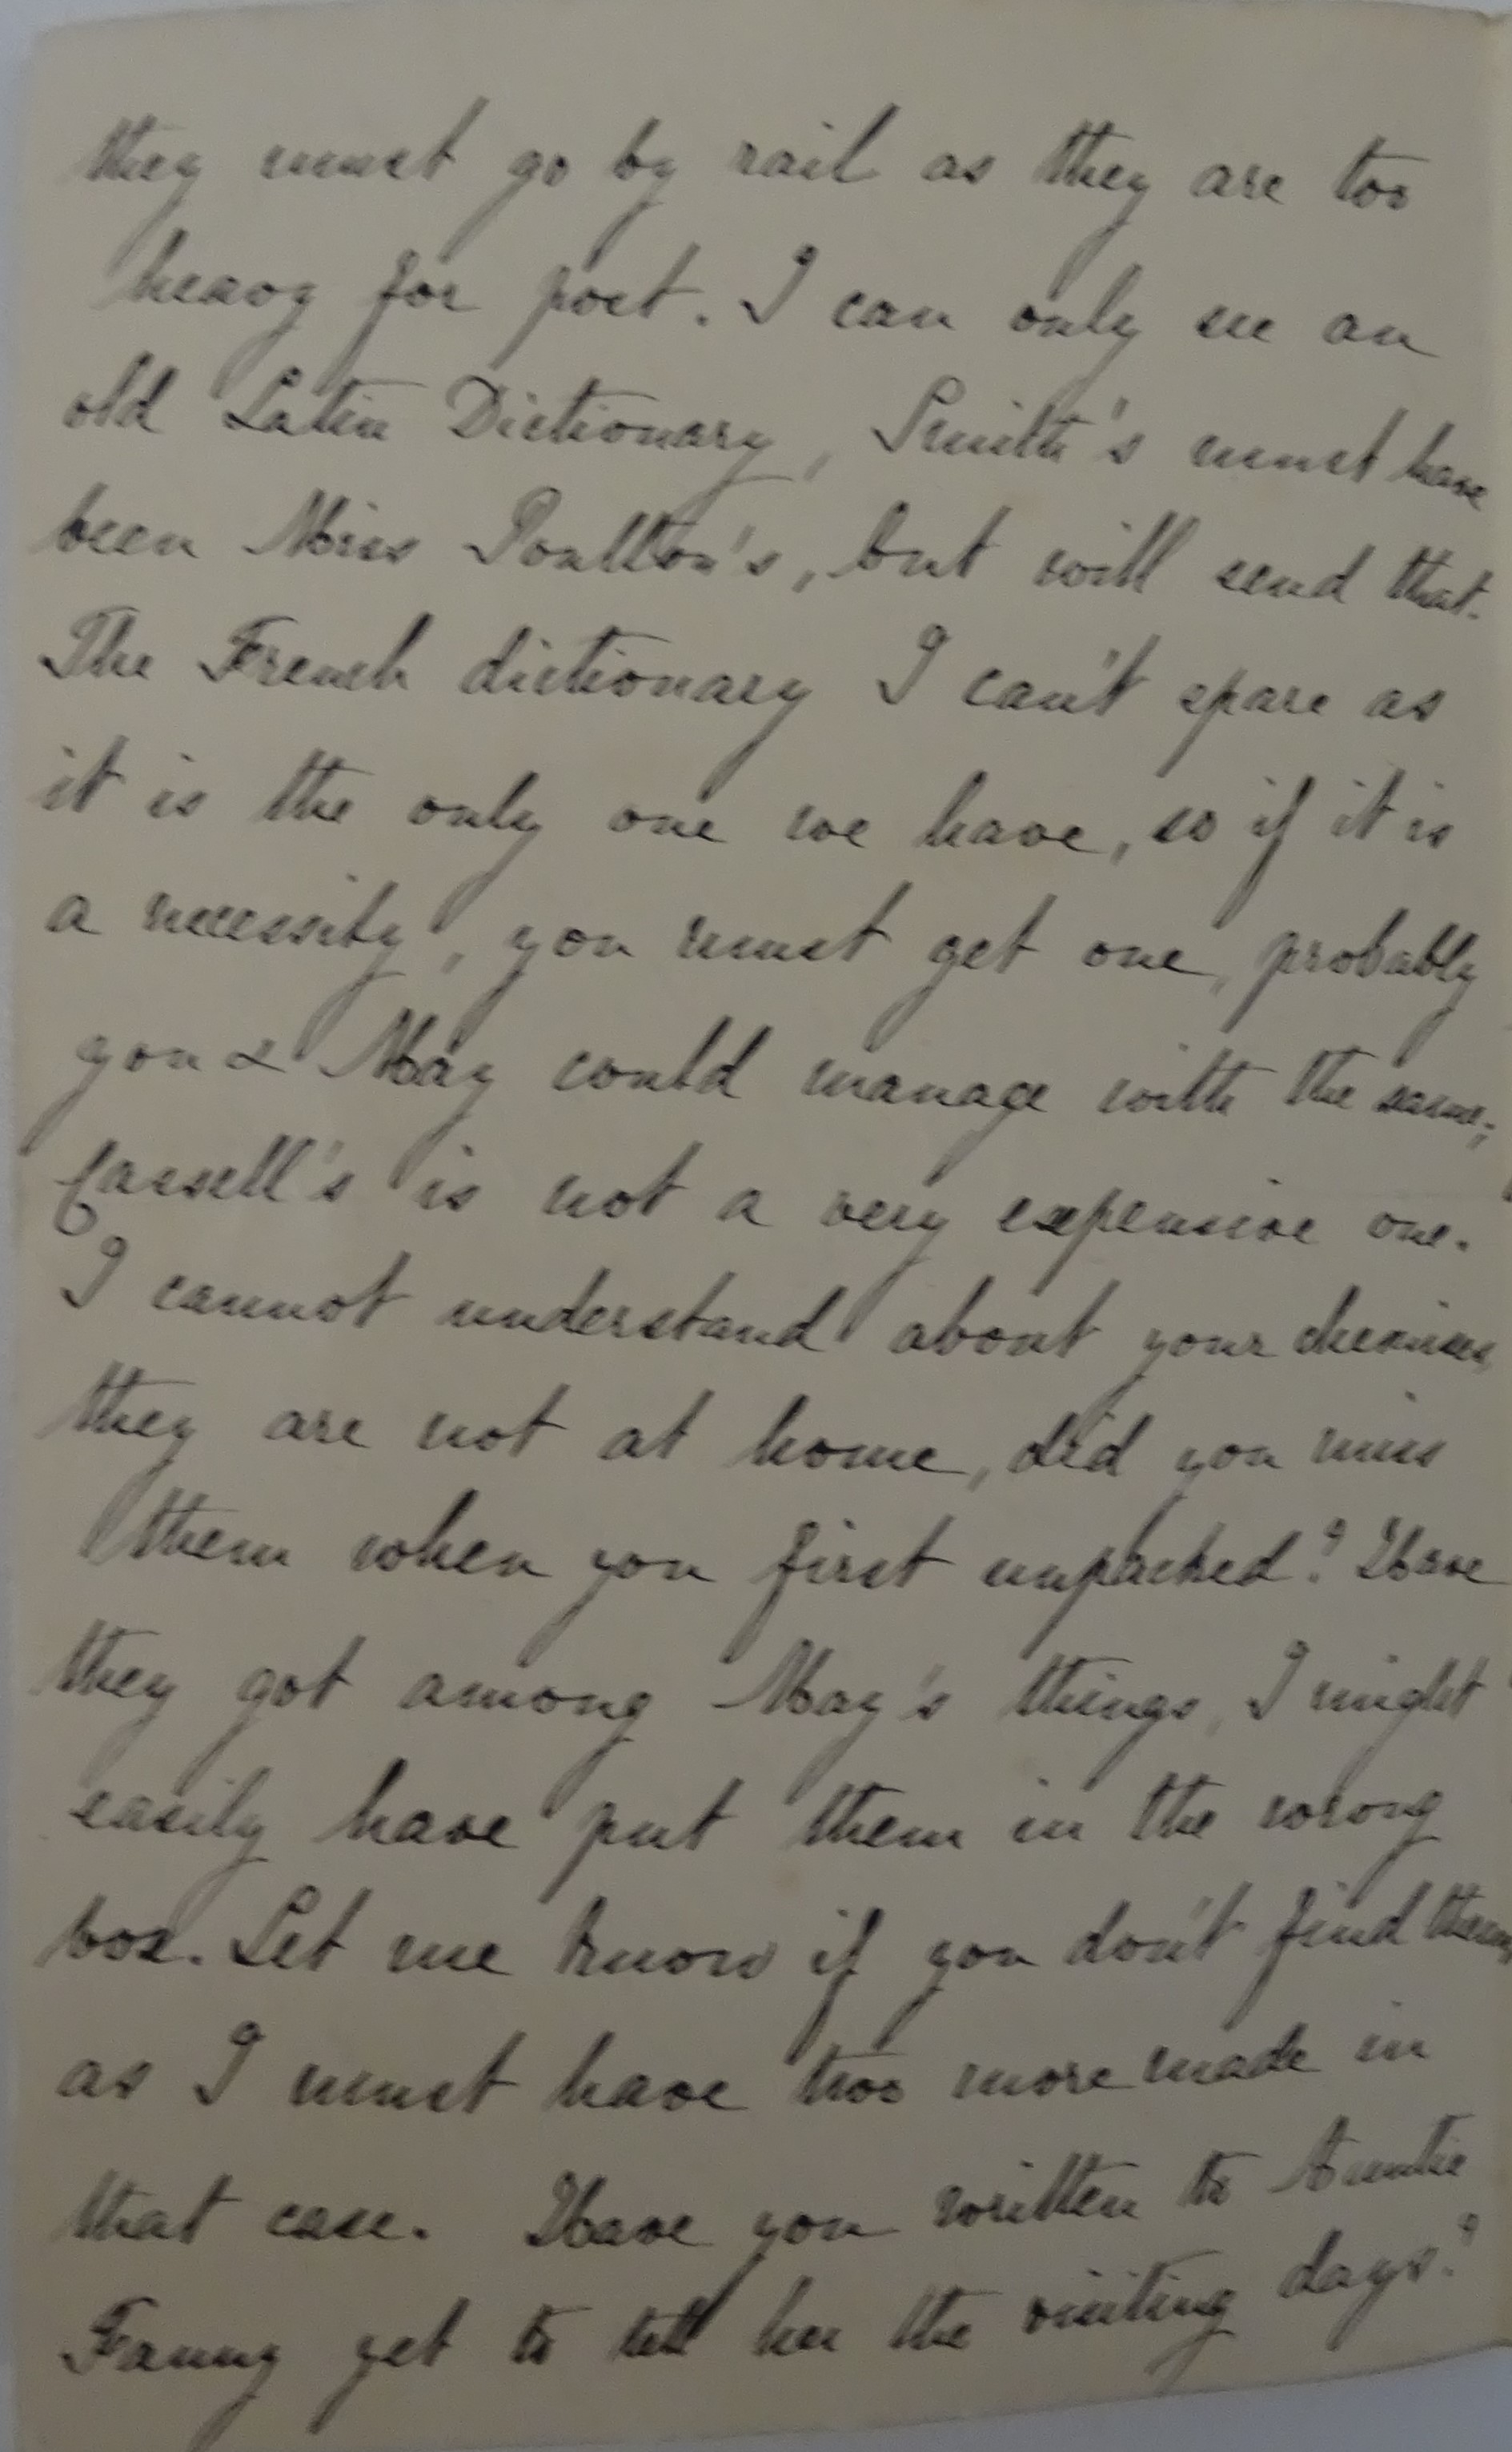 they must go by rail as they are too
heavy for post. I can only see an
old Latin Dictionary, Smith's must have
been Miss Poulton's, but will send that.
The French dictionary I can't spare as
it is the only one we have, so if it is
a necessity, you must get one, probably
you & May could manage with the same;
Cassell's is not a very expensive one.
I cannot understand about your chemises
they are not at home, did you miss
them when you first unpacked? Have
they got among May's things, I might
easily have put them in the wrong
box. Let me know if you don't find them,
as I must have two more made in
that case. Have you written to Auntie
Fanny yet to tell her the visiting days?